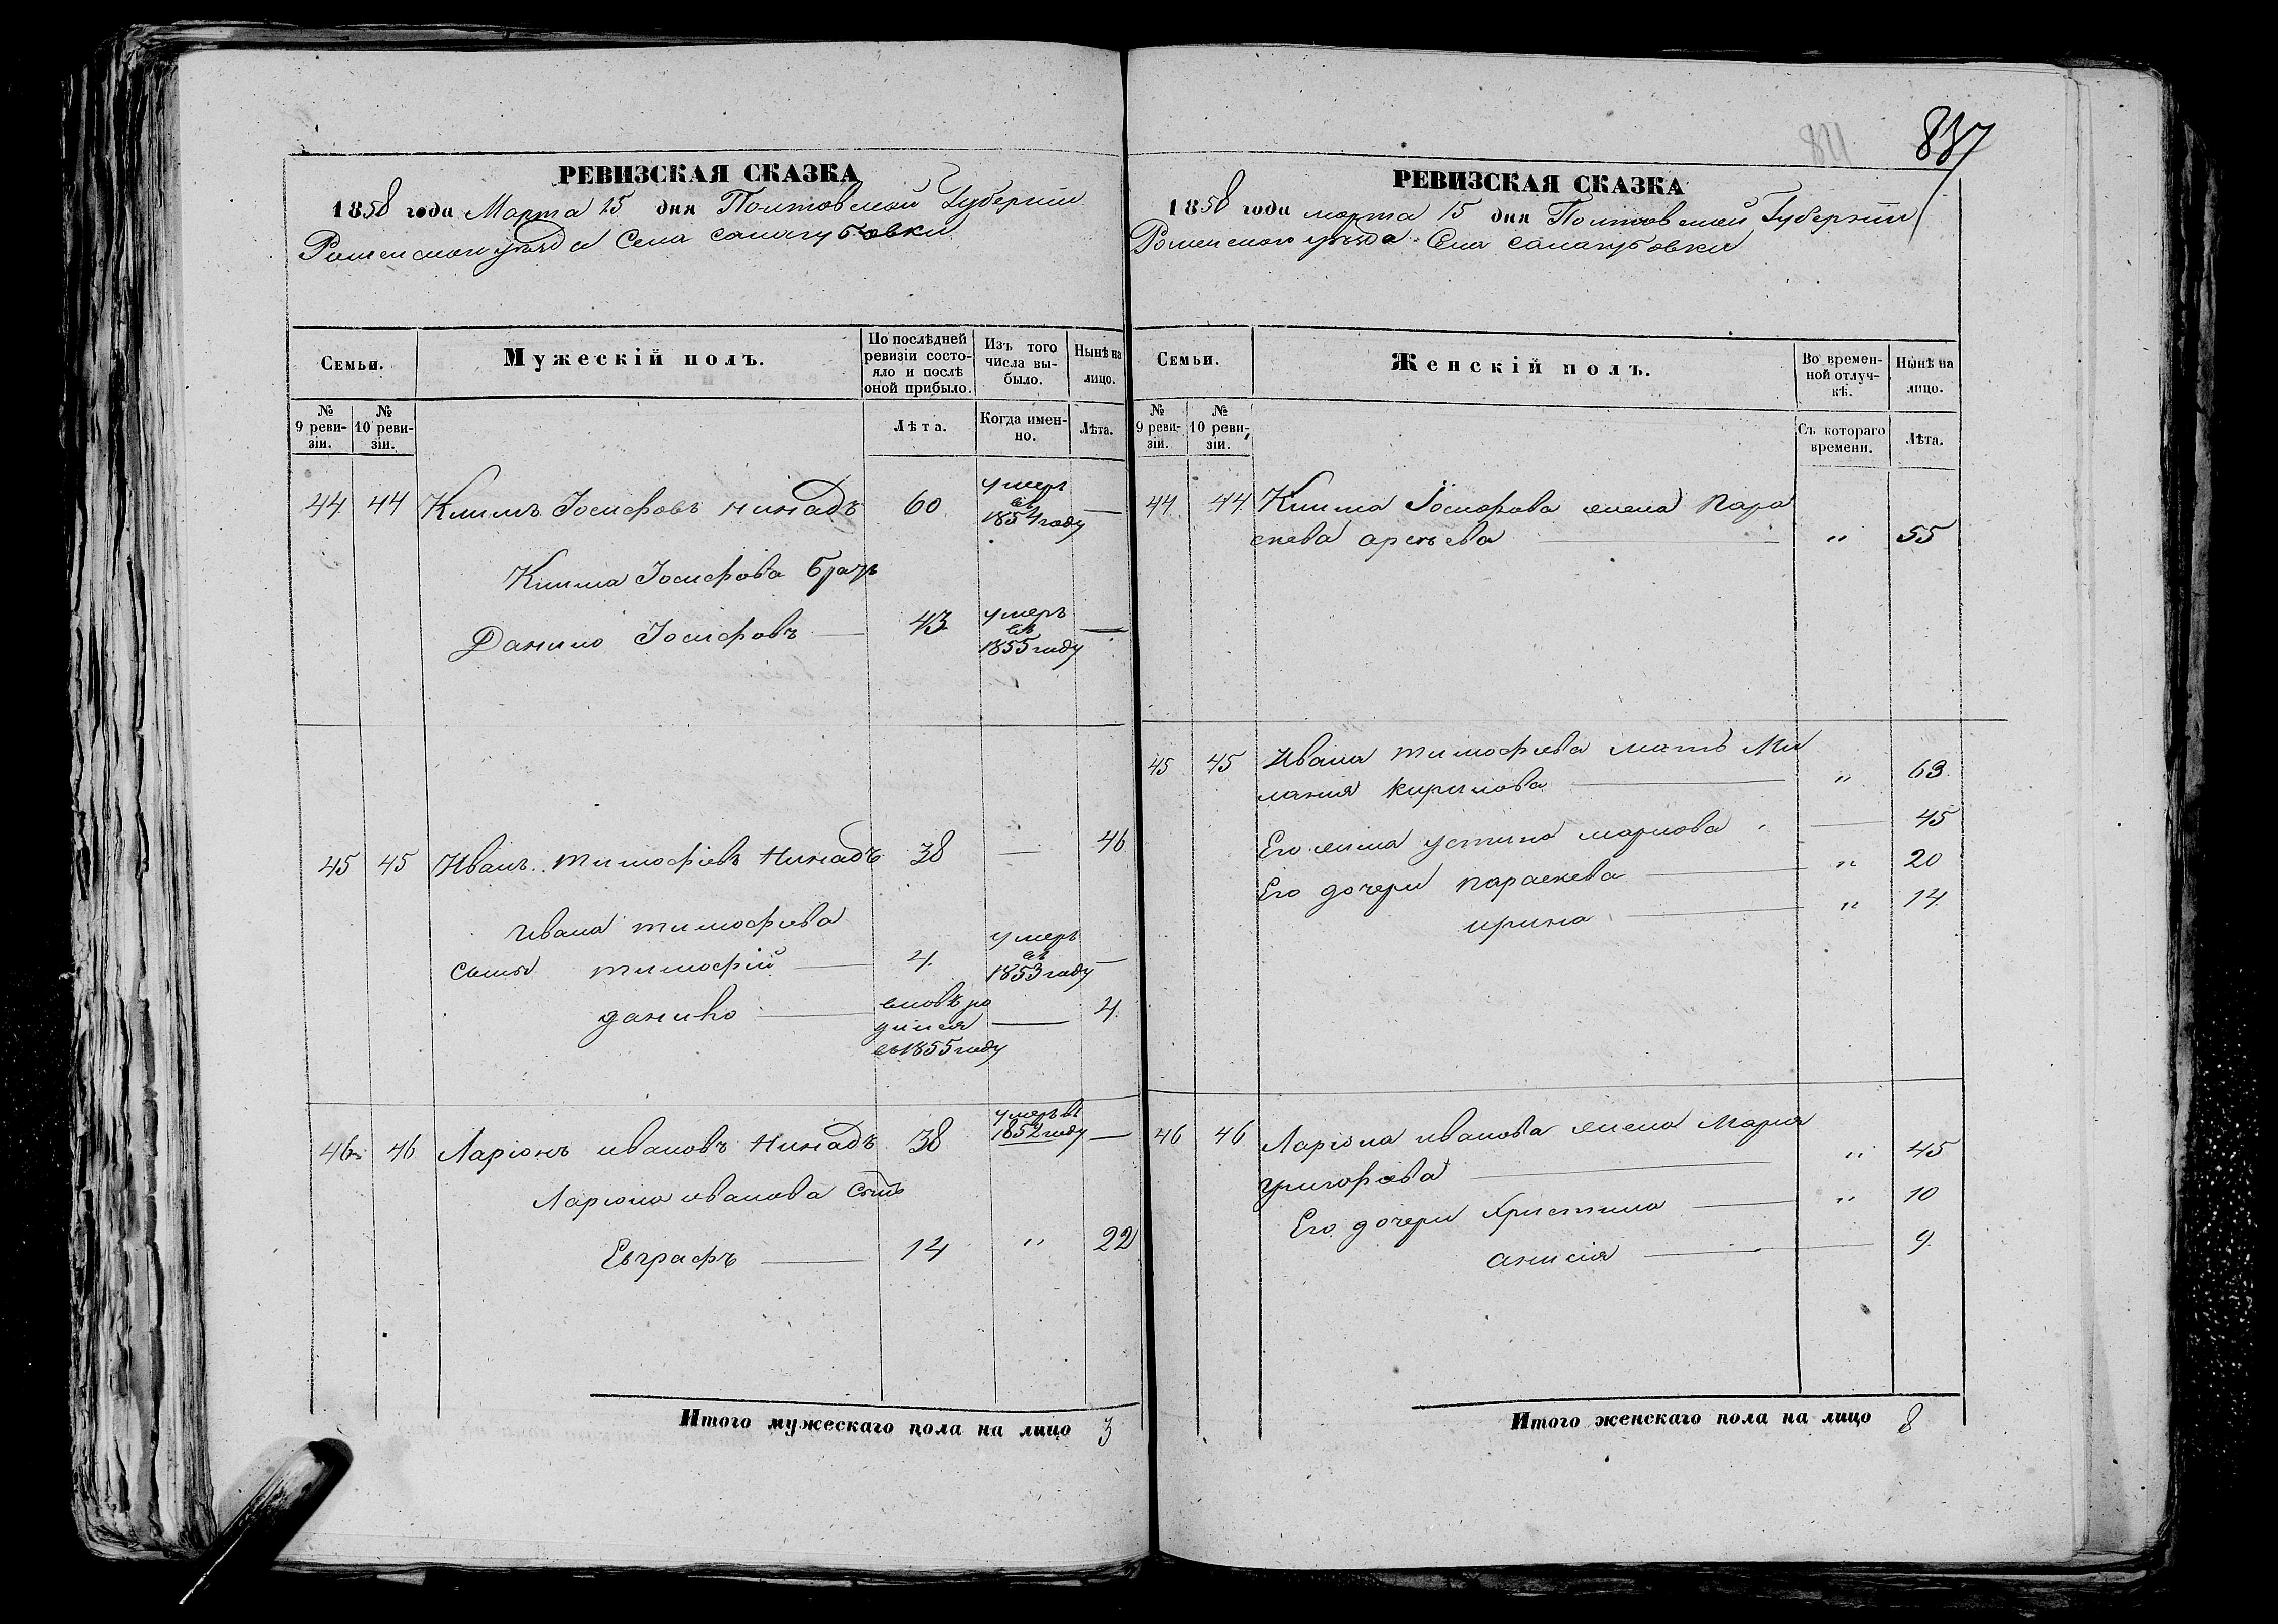 РЕВИЗСКАЯ СКАЗКА
1858 года Марта 15 дня Полтавской Губернии
Роменского уѣзда Села Салогубовки
Семьи.
Мужескій полъ.
По послѣдней ревизіи состояло и послѣ оной прибыло.
Изъ того числа выбыло.
Нынѣ на лицо.
№ 9 ревизіи.
№ 10 ревизіи.
Лѣта.
Когда именно.
Лѣта.
44 44 Климъ Іосифовъ 60 умеръ въ 1854 году —
Клима Іосифова братъ
Данило Іосифовъ — 43 умеръ въ 1855 году —
45 45 Иванъ Тимофіевъ 38 — 46
Ивана Тимофіева
сыны Тимофій — 4 умеръ въ 1853 году —
Данило — вновь родился въ 1855 году — 4
46 46 Ларіонъ Ивановъ 38 умеръ въ 1852 году —
Ларіона Иванова сынъ
Евграфъ — 14 " 22
Итого мужескаго пола на лицо 3
837
РЕВИЗСКАЯ СКАЗКА
1858 года Марта 15 дня Полтавской Губерніи
Роменского уѣзда Села Салогубовки
Семьи.
Женскій полъ.
Во временной отлучкѣ.
Нынѣ на лицо.
№ 9 ревизіи.
№ 10 ревизіи.
Съ котораго времени.
Лѣта.
44 44 Клима Іосифова жена Пара
скева — " 55
45 45 Ивана Тимофіева мать Ми
ланія Кирилова — " 63
Его жена Устина Маркова — 45
Его дочери Параскева — " 20
Ирина — " 14
46 46 Ларіона Иванова жена Марія
Григорьева — " 45
Его дочери Христина — " 10
Анисія — 9
Итого женскаго пола на лицо 8